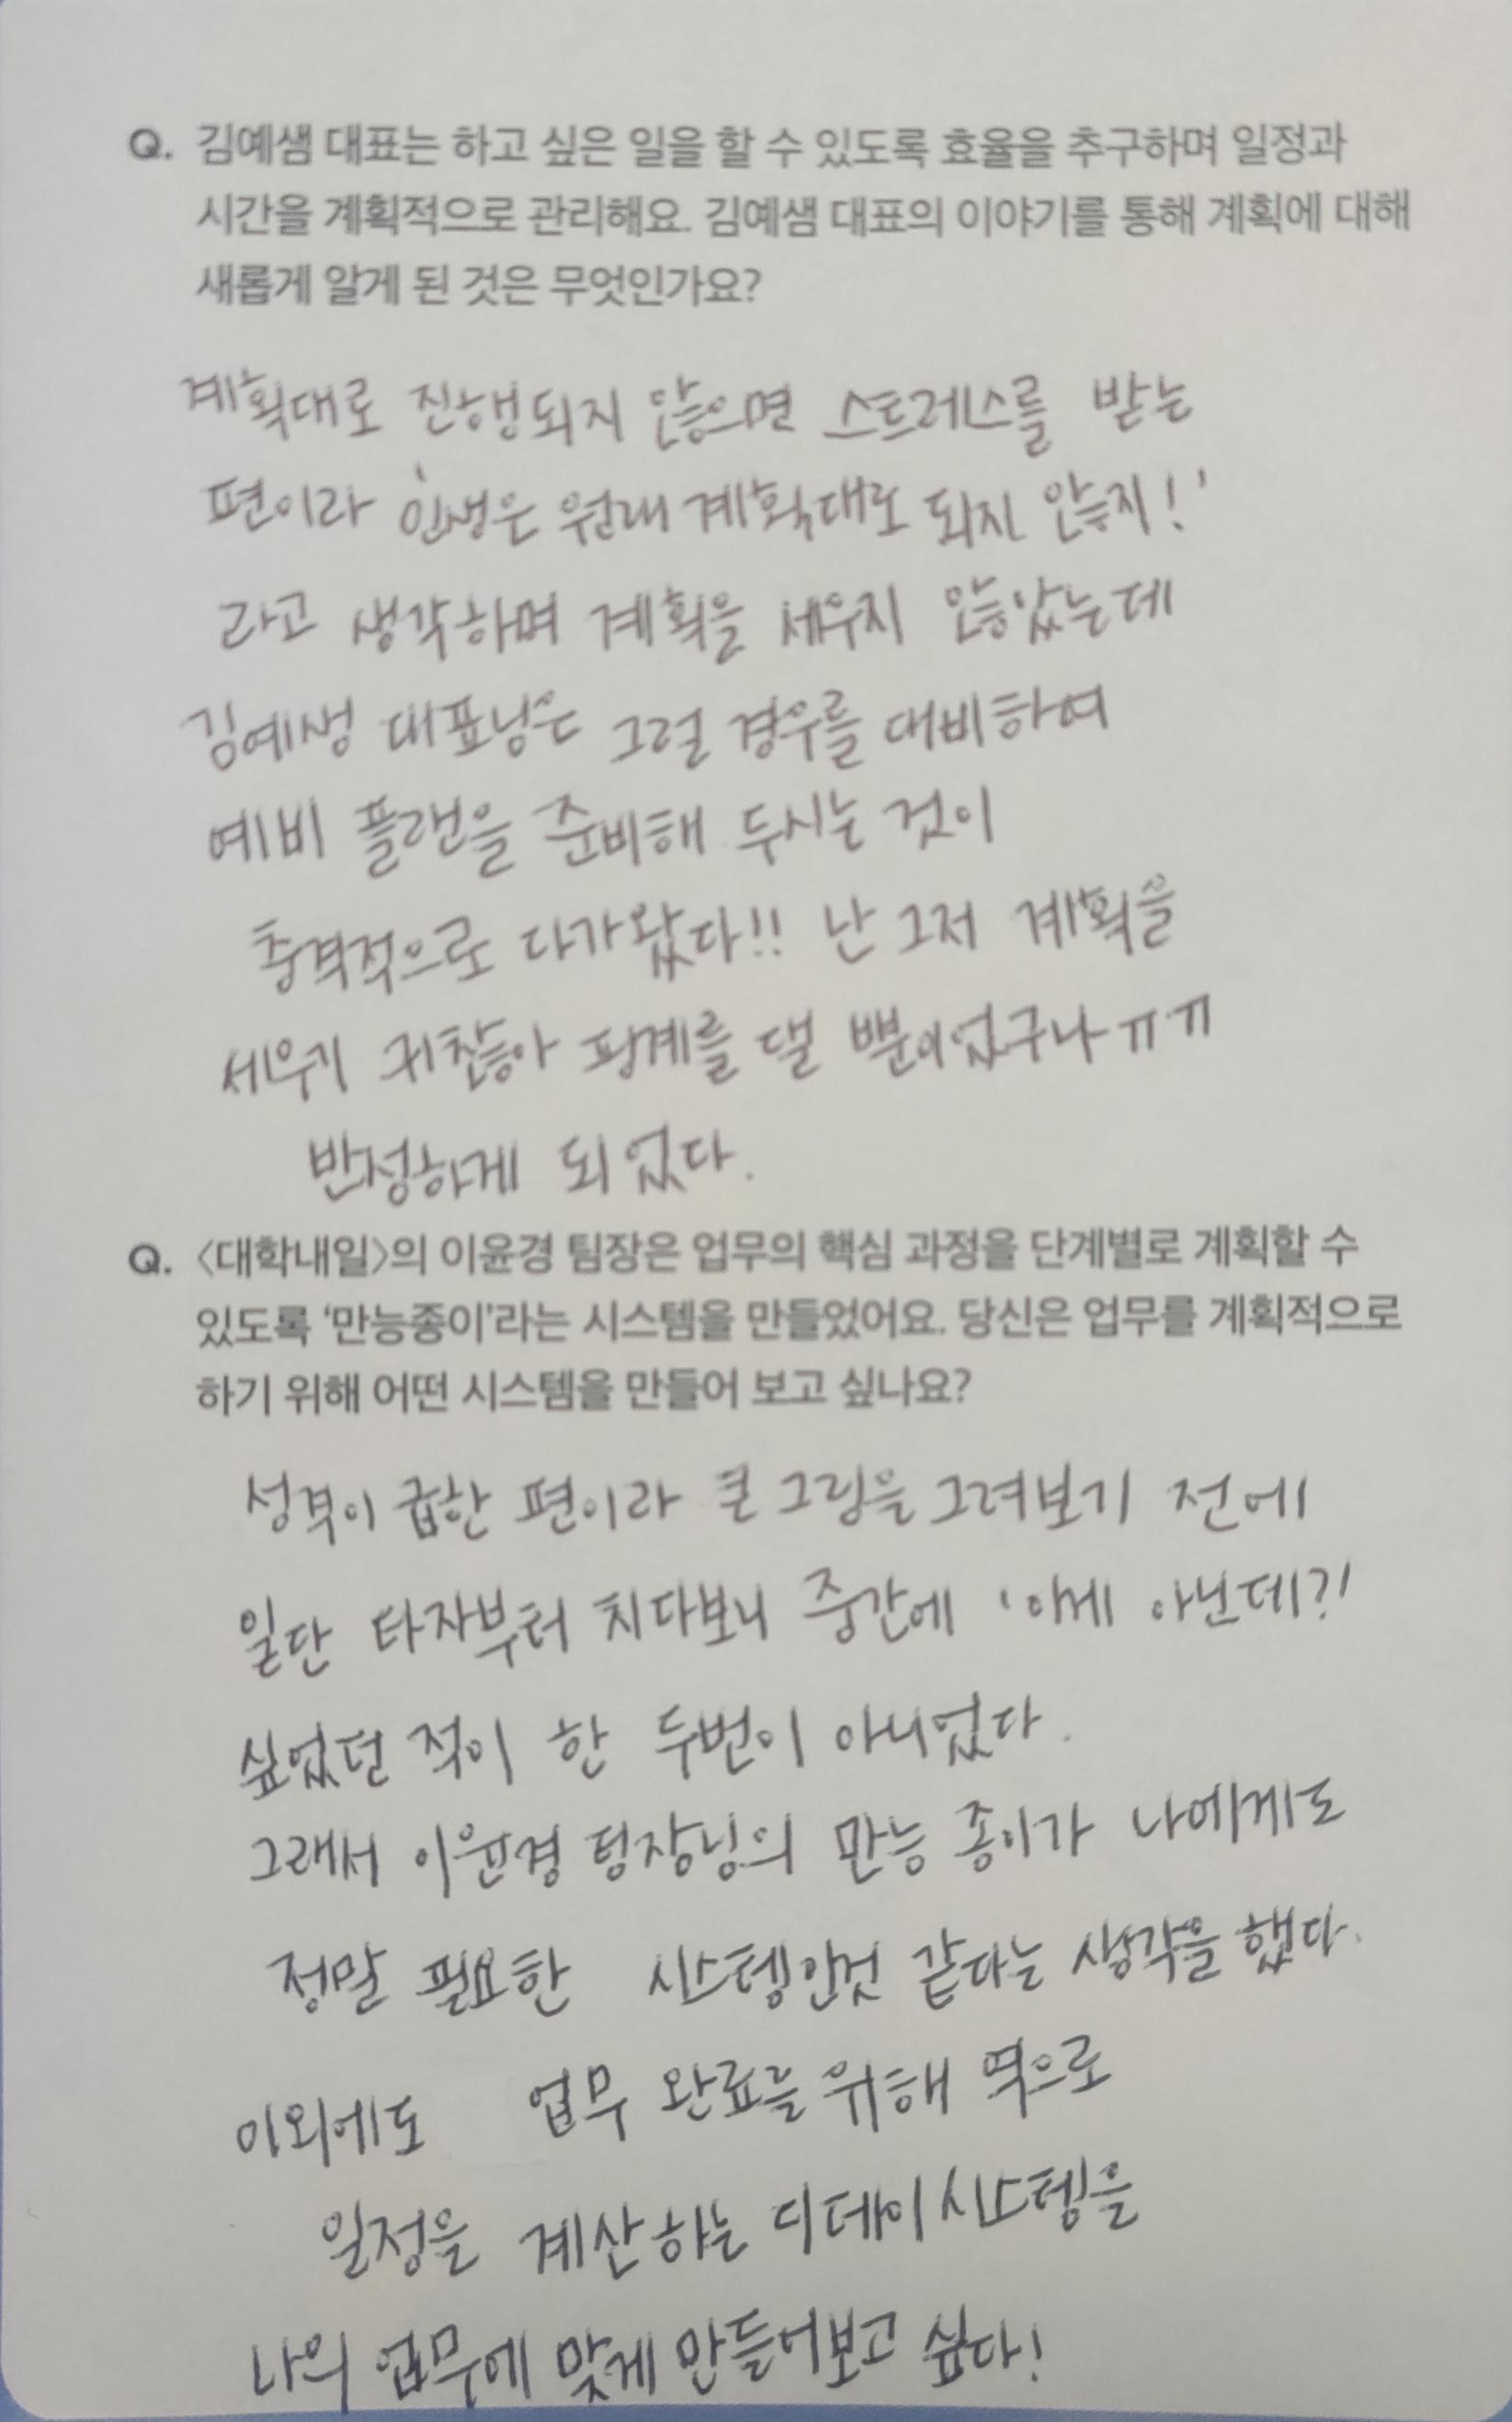 Q. 김예샘 대표는 하고 싶은 일을 할 수 있도록 효율을 추구하며 일정과
시간을 계획적으로 관리해요. 김예샘 대표의 이야기를 통해 계획에 대해
새롭게 알게 된 것은 무엇인가요?
계획대로 진행되지 않으면 스트레스를 받는
편이라 '인생은 원래 계획대로 되지 않지!'
라고 생각하며 계획을 세우지 않았는데
김예생 대표님은 그럴 경우를 대비하여
예비 플랜을 준비해 두시는 것이
충격적으로 다가왔다!! 난 그저 계획을
세우기 귀찮아 핑계를 댈 뿐이었구나 ㅠㅠ
반성하게 되었다.
Q. <대학내일>의 이윤경 팀장은 업무의 핵심 과정을 단계별로 계획할 수
있도록 '만능종이'라는 시스템을 만들었어요. 당신은 업무를 계획적으로
하기 위해 어떤 시스템을 만들어 보고 싶나요?
성격이 급한 편이라 큰 그림을 그려보기 전에
일단 타자부터 치다보니 중간에 '이게 아닌데?'
싶었던 적이 한 두번이 아니었다.
그래서 이윤경 팀장님의 만능 종이가 나에게도
정말 필요한 시스템인것 같다는 생각을 했다.
이외에도 업무 완료를 위해 역으로
일정을 계산하는 디데이 시스템을
나의 업무에 맞게 만들어보고 싶다!